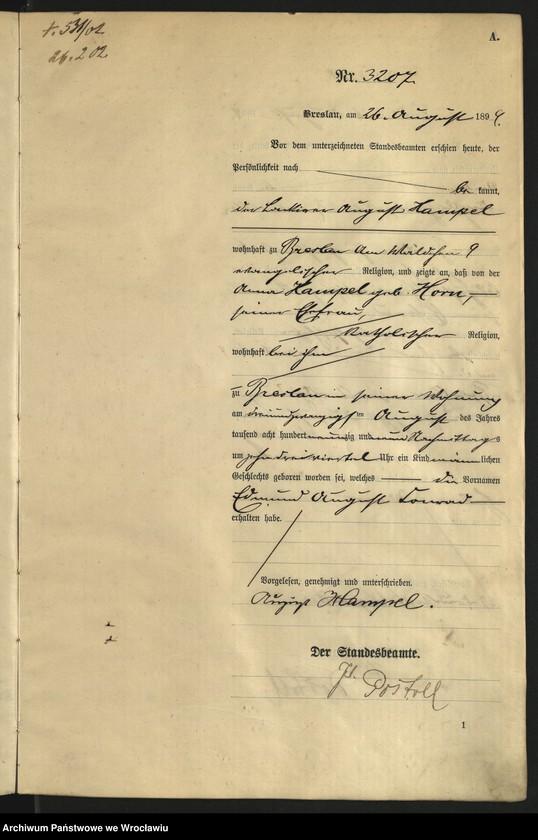 +. 531/02
26.2.02
A.
Nr. 3207
Breslau, am 26. August 1899.
Vor dem unterzeichneten Standesbeamten erschien heute, der
Persönlichkeit nach
be kannt,
der Lackirer August Hampel
wohnhaft zu Breslau Am Wäldchen 9
evangelischer Religion, und zeigte an, daß von der
Anna Hampel geb. Horn,
seiner Ehefrau,
katholischer Religion,
wohnhaft bei ihm
zu Breslau in seiner Wohnung
am dreiundzwanzigsten August des Jahres
tausend acht hundert neunzig und neun Nachmittags
um zehn dreiviertel Uhr ein Kind männlichen
Geschlechts geboren worden sei, welches die Vornamen
Edmund August Conrad
erhalten habe.
Vorgelesen, genehmigt und unterschrieben.
August Hampel.
Der Standesbeamte.
1
Archiwum Państwowe we Wrocławiu